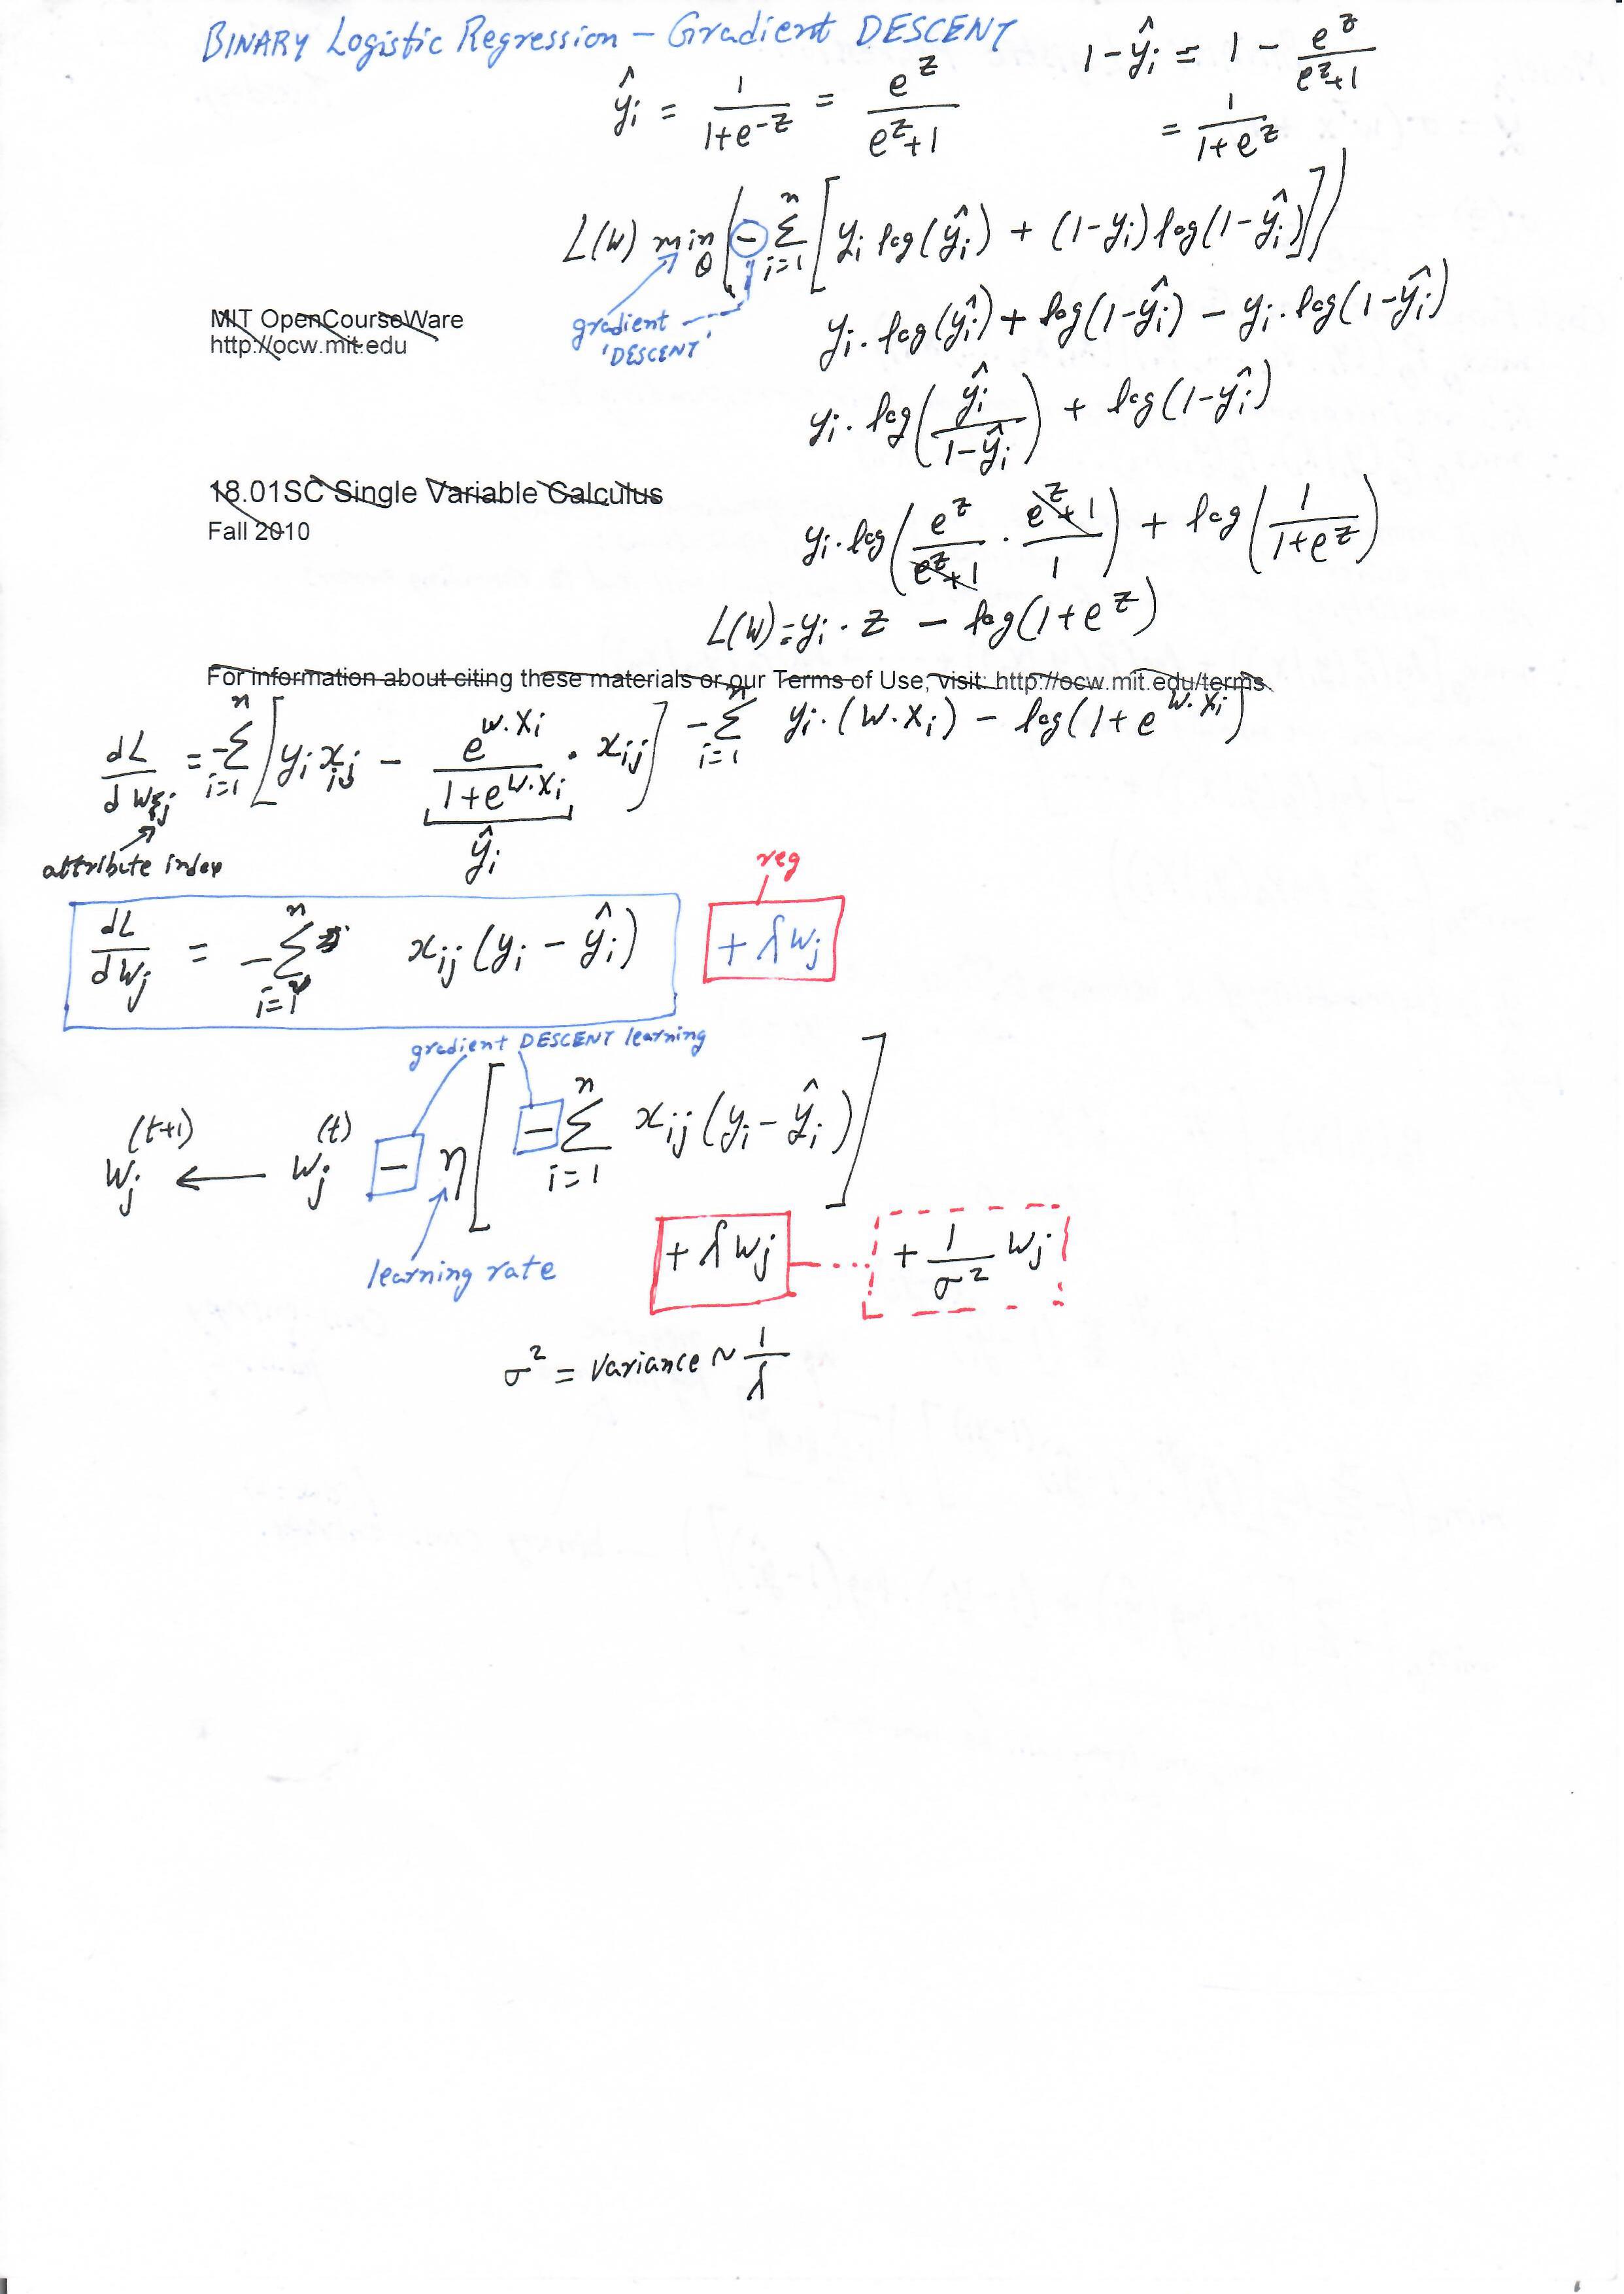 BINARY Logistic Regression – Gradient DESCENT
ŷi = 1/(1+e^-z) = e^z/(e^z+1)
1-ŷi = 1 - e^z/(e^z+1)
= 1/(1+e^z)
L(W) min θ (- Σ i=1 n [yi log(ŷi) + (1-yi) log(1-ŷi)])
gradient
'DESCENT'
yi . log(ŷi) + log(1-ŷi) - yi . log(1-ŷi)
MIT OpenCourseWare
http://ocw.mit.edu
yi . log(ŷi/(1-ŷi)) + log(1-ŷi)
18.01SC Single Variable Calculus
Fall 2010
yi . log(e^z/(e^z+1) . (e^z+1)/1) + log(1/(1+e^z))
L(W) = yi . z - log(1+e^z)
For information about citing these materials or our Terms of Use, visit: http://ocw.mit.edu/terms.
- Σ i=1 n yi . (W.Xi) - log(1+e^W.Xi)
dL/dWj = - Σ i=1 n [yi xij - e^W.Xi/(1+e^W.Xi) . xij]
ŷi
attribute index
reg
dL/dWj = - Σ i=1 n xij (yi - ŷi) + λWj
gradient DESCENT learning
Wj^(t+1) ← Wj^(t) - η [- Σ i=1 n xij (yi - ŷi)]
learning rate
+ λWj + 1/σ² Wj
σ² = variance ~ 1/λ